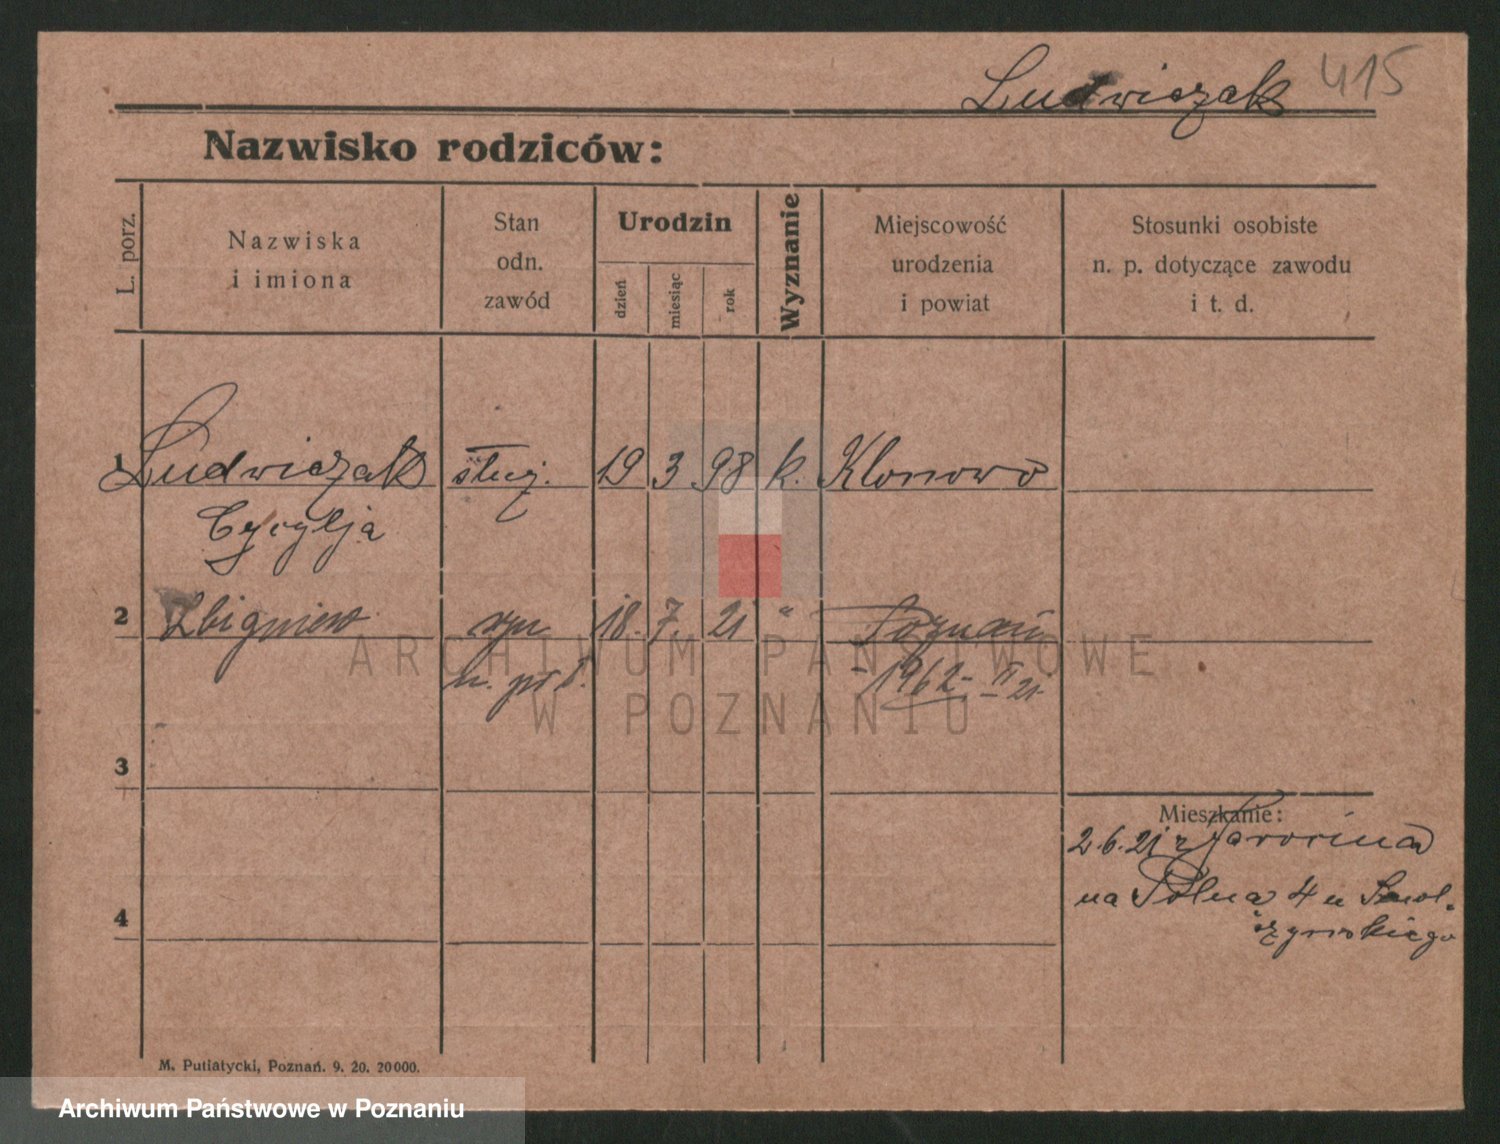 Ludwiczak 415
Nazwisko rodziców:
L. porz.
Nazwiska
i imiona
Stan
odn.
zawód
Urodzin
dzień
miesiąc
rok
Wyznanie
Miejscowość
urodzenia
i powiat
Stosunki osobiste
n. p. dotyczące zawodu
i t. d.
1 Ludwiczak służ. 19 3 98 k. Klonowo
Cycylja
2 Zbigniew syn 18. 7. 21 " Poznań
n. pśl. - 1962 - II 21
3
Mieszkanie:
2.6.21 z Jarocina
na Polna 4 u Smol-
4
M. Putiatycki, Poznań. 9. 20. 20000.
ARCHIWUM PAŃSTWOWE
W POZNANIU
Archiwum Państwowe w Poznaniu